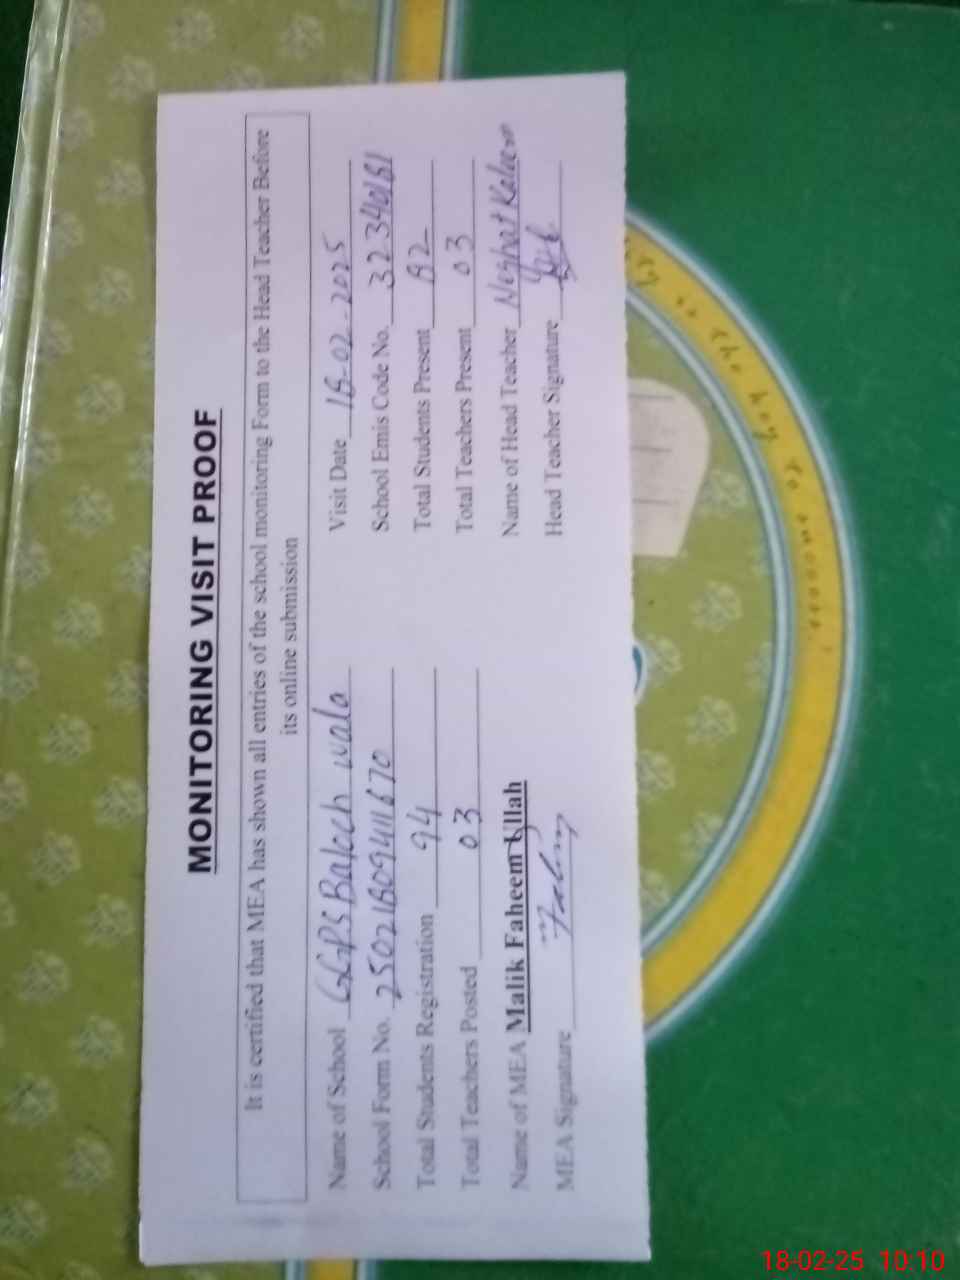 MONITORING VISIT PROOF
It is certified that MEA has shown all entries of the school monitoring Form to the Head Teacher Before
its online submission
Name of School GGPS Baloch wala
Visit Date 18-02-2025
School Form No. 250218094111670
School Emis Code No. 32340181
Total Students Registration 94
Total Students Present 82
Total Teachers Posted 03
Total Teachers Present 03
Name of MEA Malik Faheem Ullah
Name of Head Teacher Neghat Kaleem
MEA Signature Faheem
Head Teacher Signature
18-02-25 10:10